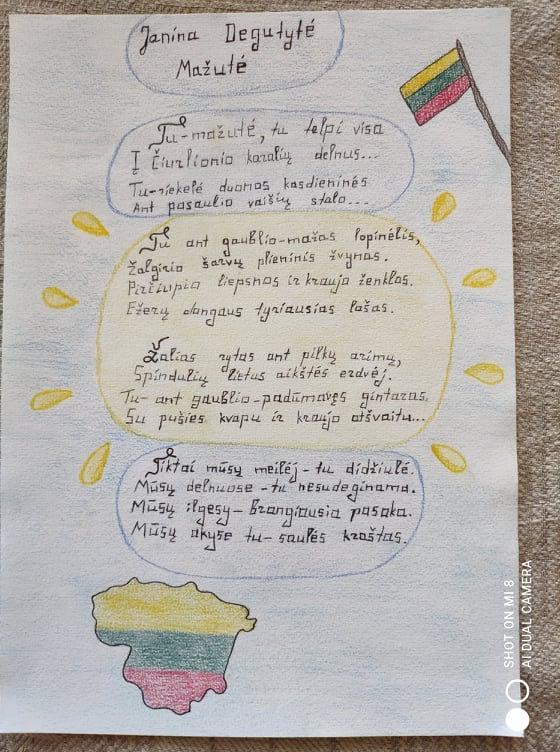 Janina Degutytė
Mažutė
Tu-mažutė, tu telpi visa
Į Čiurlionio karalių delnus...
Tu-riekelė duonos kasdieninės
Ant pasaulio vaišių stalo...
Tu ant gaublio-mažas lopinėlis,
Žalgirio šarvų plieninis žvynas.
Pirčiupio liepsnos ir kraujo ženklas.
Ežerų dangaus tyriausias lašas.
Žalias rytas ant pilkų arimų,
Spindulių lietus aikštės erdvėj.
Tu- ant gaublio-padūmavęs gintaras,
Su pušies kvapu ir kraujo atšvaitu...
Tiktai mūsų meilėj - tu didžiulė.
Mūsų delnuose - tu nesudeginama.
Mūsų ilgesy- brangiausia pasaka.
Mūsų akyse tu- saulės kraštas.
SHOT ON MI 8
AI DUAL CAMERA